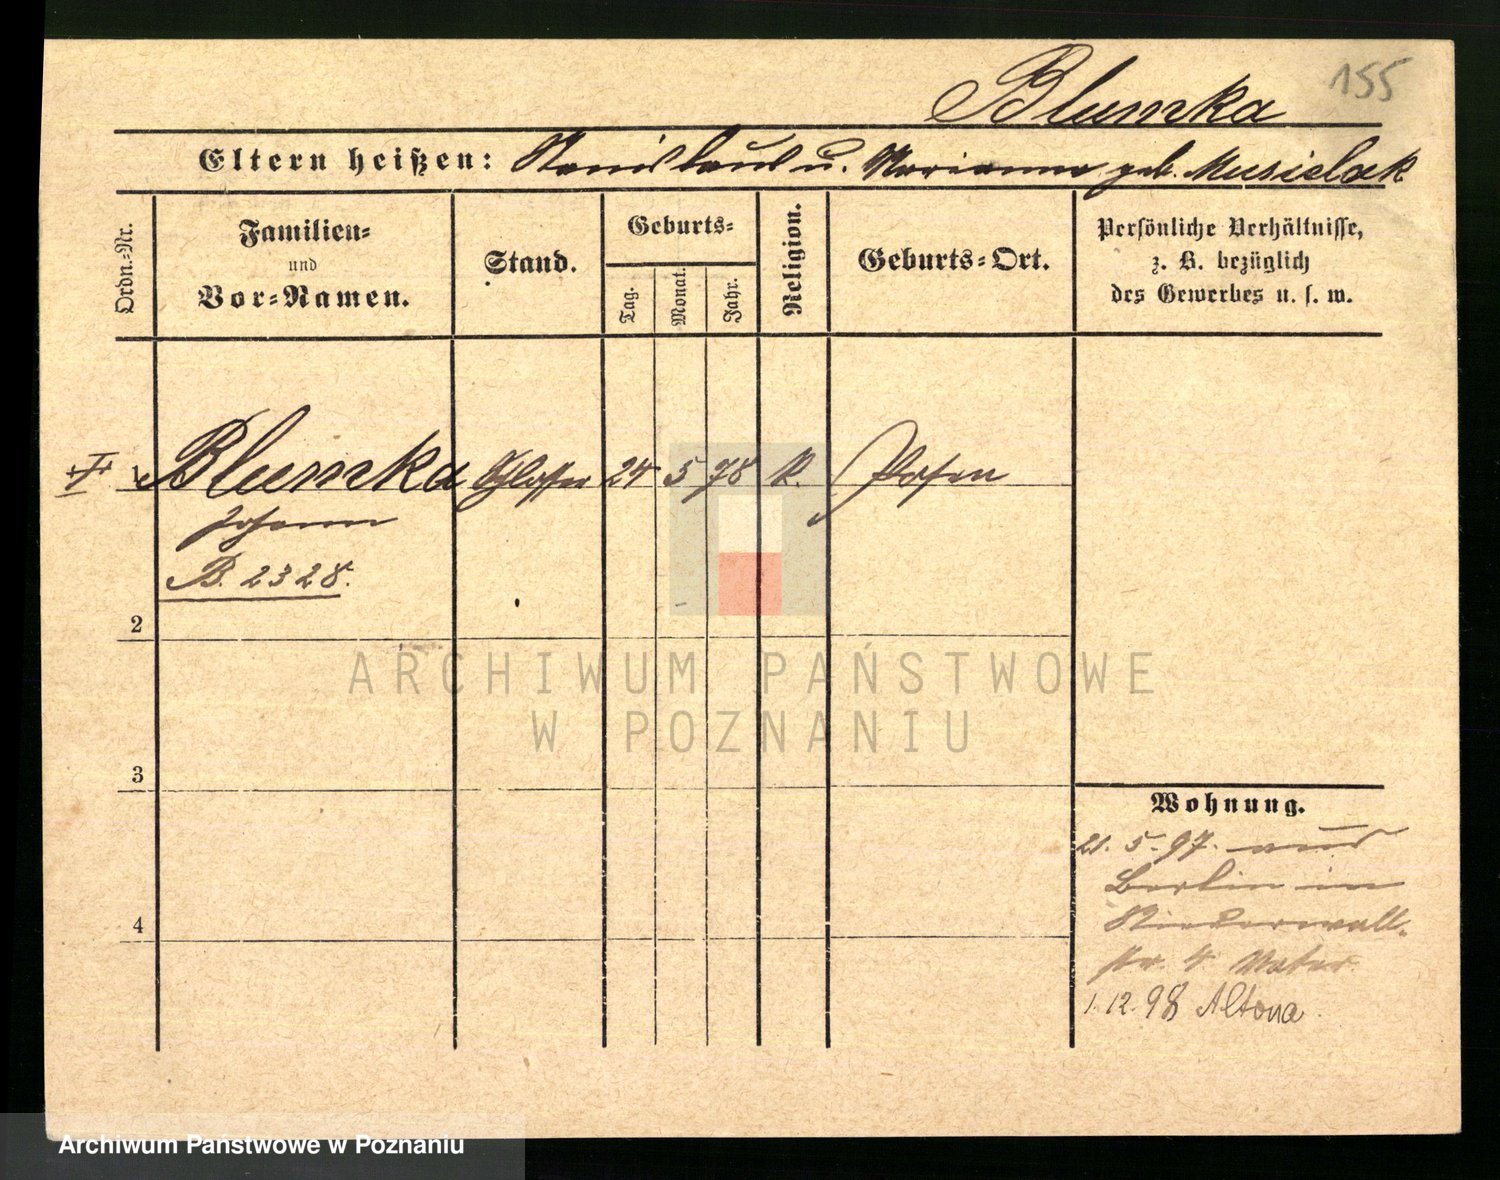 155
Blumka
Eltern heißen: Stanislaus u. Marianna geb. Musielak
Ordn.-Nr.
Familien-
und
Vor-Namen.
Stand.
Geburts-
Tag.
Monat.
Jahr.
Religion.
Geburts-Ort.
Persönliche Verhältnisse,
z. B. bezüglich
des Gewerbes u. s. w.
I 1 Blumka Schlosser 24 5 78 k. Posen
Johann
B. 2328.
2
3
4
Wohnung.
21. 5. 97. aus
Berlin in
Niederwall-
str. 4 Vater.
1. 12. 98 Altona.
ARCHIWUM PAŃSTWOWE
W POZNANIU
Archiwum Państwowe w Poznaniu